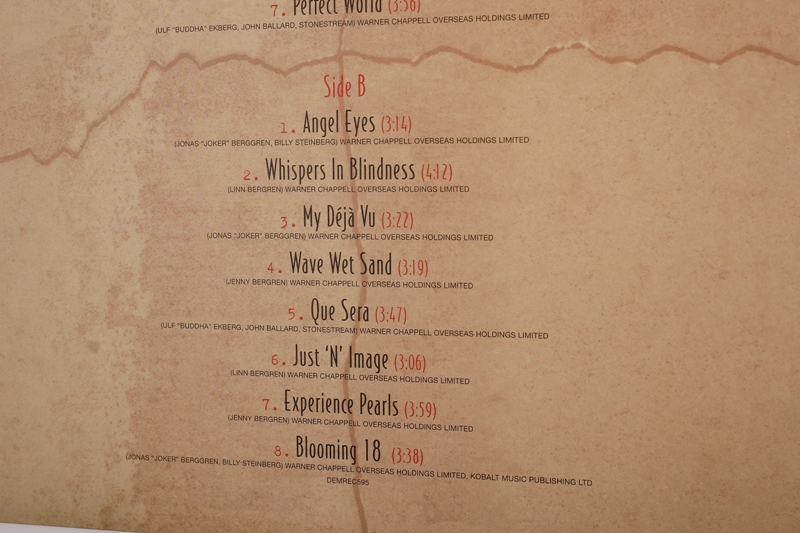 7. Perfect World (3:56)
(ULF "BUDDHA" EKBERG, JOHN BALLARD, STONESTREAM) WARNER CHAPPELL OVERSEAS HOLDINGS LIMITED
Side B
1. Angel Eyes (3:14)
(JONAS "JOKER" BERGGREN, BILLY STEINBERG) WARNER CHAPPELL OVERSEAS HOLDINGS LIMITED
2. Whispers In Blindness (4:12)
(LINN BERGREN) WARNER CHAPPELL OVERSEAS HOLDINGS LIMITED
3. My Déjà Vu (3:22)
(JONAS "JOKER" BERGGREN) WARNER CHAPPELL OVERSEAS HOLDINGS LIMITED
4. Wave Wet Sand (3:19)
(JENNY BERGREN) WARNER CHAPPELL OVERSEAS HOLDINGS LIMITED
5. Que Sera (3:47)
(ULF "BUDDHA" EKBERG, JOHN BALLARD, STONESTREAM) WARNER CHAPPELL OVERSEAS HOLDINGS LIMITED
6. Just 'N' Image (3:06)
(LINN BERGREN) WARNER CHAPPELL OVERSEAS HOLDINGS LIMITED
7. Experience Pearls (3:59)
(JENNY BERGREN) WARNER CHAPPELL OVERSEAS HOLDINGS LIMITED
8. Blooming 18 (3:38)
(JONAS "JOKER" BERGGREN, BILLY STEINBERG) WARNER CHAPPELL OVERSEAS HOLDINGS LIMITED, KOBALT MUSIC PUBLISHING LTD
DEMREC595